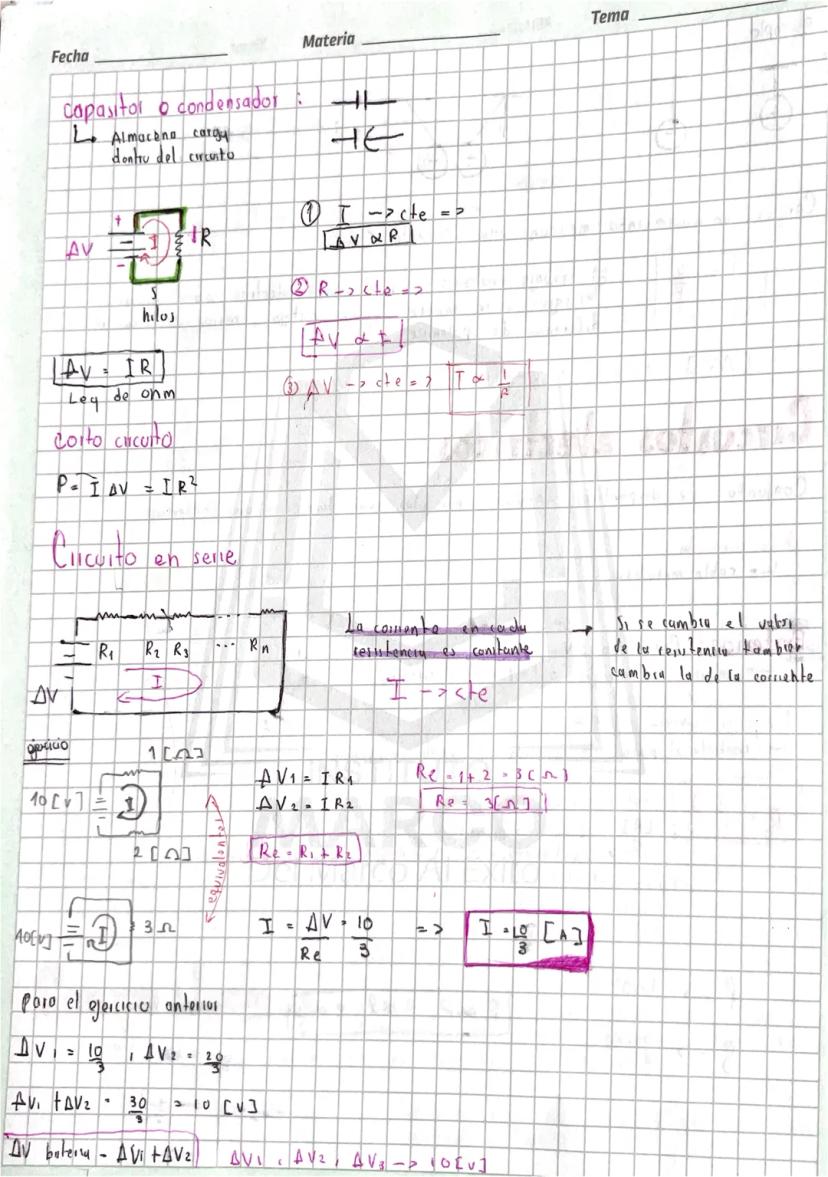 Tema
Materia
Fecha
capasitor o condensador :
↳ Almacena carga
dentro del circuito
+
ΔV
I
R
-
hilos
① I -> cte =>
ΔV ∝ R
② R -> cte =>
ΔV ∝ I
③ ΔV -> cte => I ∝ 1/R
ΔV = I R
Ley de ohm
corto circuito
P = I ΔV = I R²
Circuito en serie
R1 R2 R3 ... Rn
I
ΔV
La corriente en cada
resistencia es constante
I -> cte
→ Si se cambia el valor
de la resistencia tambien
cambia la de la corriente
ejercicio
1 [Ω]
10 [V]
I
2 [Ω]
equivalentes
ΔV1 = I R1
ΔV2 = I R2
Re = R1 + R2
Re = 1 + 2 = 3 [Ω]
Re = 3 [Ω]
10[V]
I
3 Ω
I = ΔV/Re = 10/3 => I = 10/3 [A]
para el ejercicio anterior
ΔV1 = 10/3 , ΔV2 = 20/3
ΔV1 + ΔV2 = 30/3 = 10 [V]
ΔV bateria = ΔV1 + ΔV2
ΔV1 , ΔV2 , ΔV3 -> 10[V]